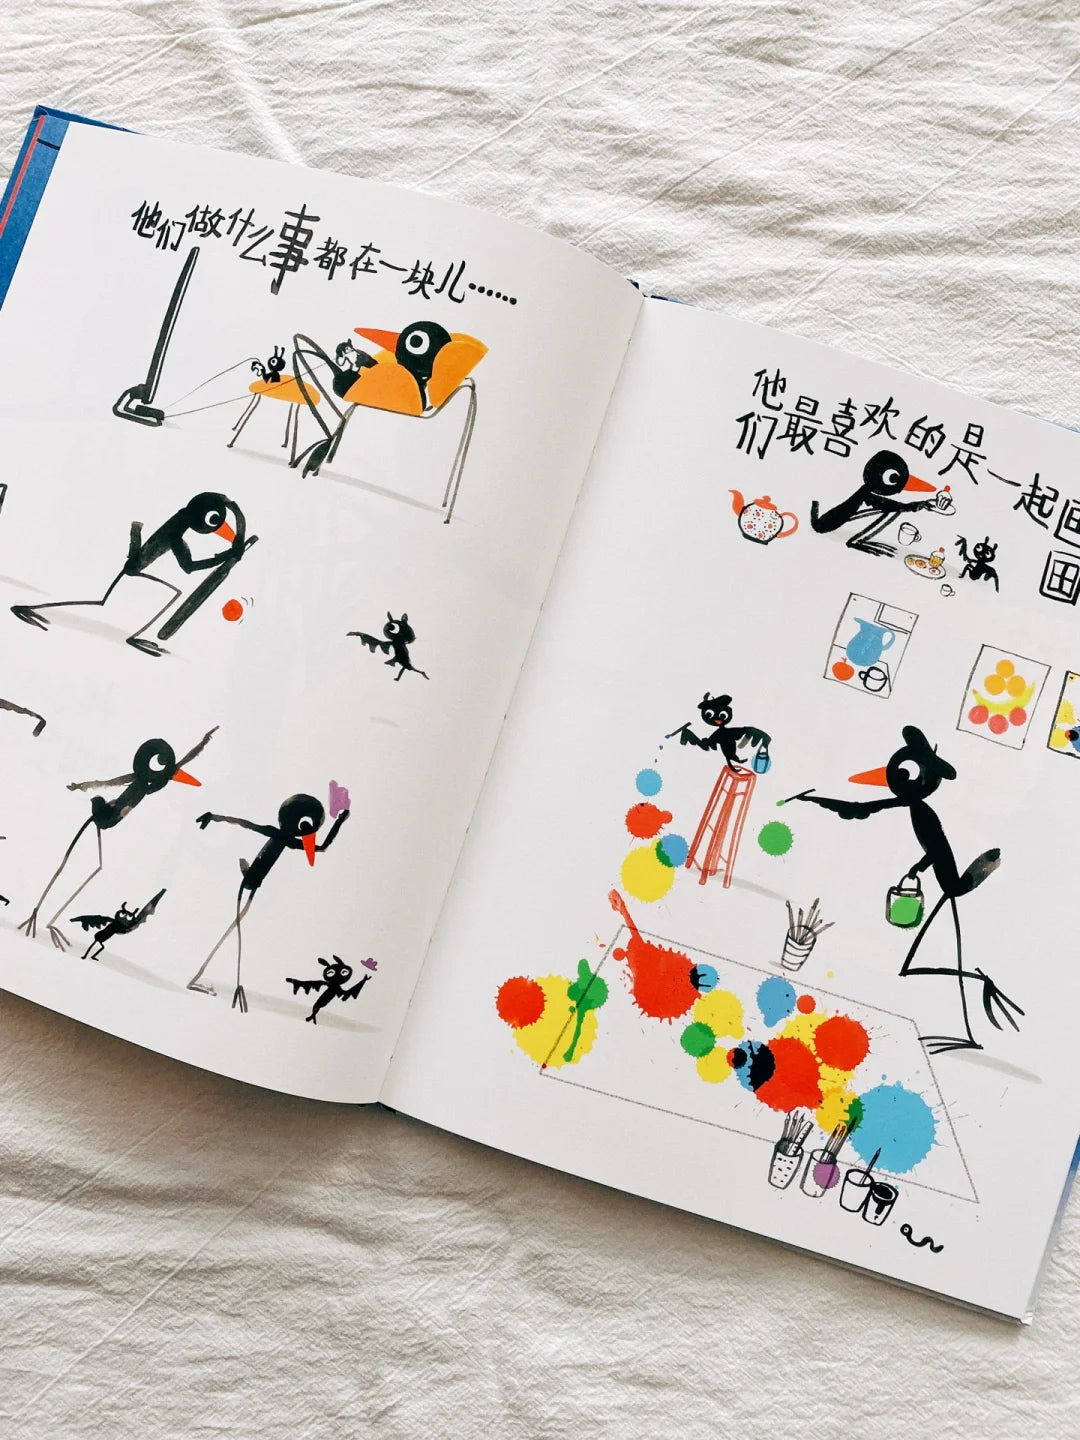 他们做什么事都在一块儿……
他们最喜欢的是一起画画